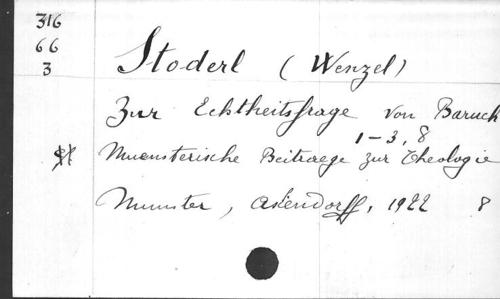 316
66
3
Stoderl (Wenzel)
Zur Echtheitsfrage von Baruch
1-3, 8
Muensterische Beitraege zur Theologie
Munster, Asendorff, 1922 8